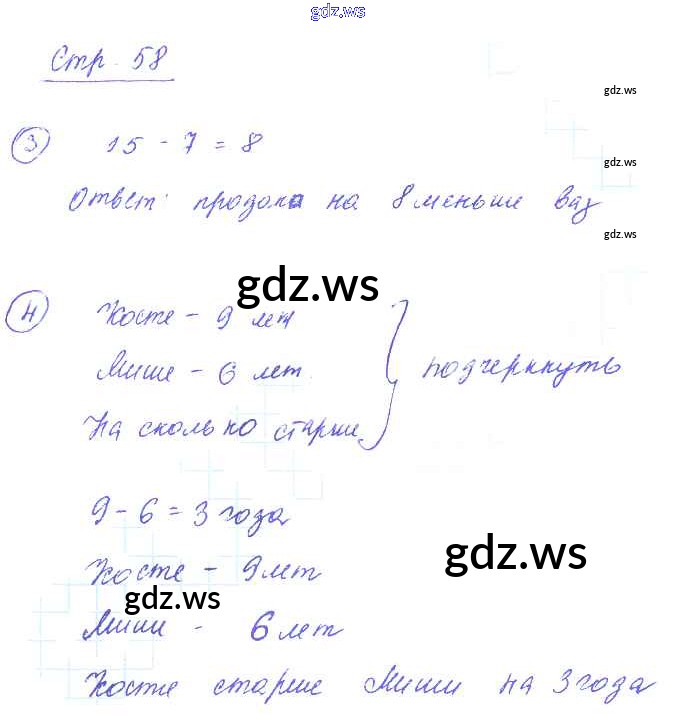 gdz.ws
Стр. 58
gdz.ws
3 15 - 7 = 8
gdz.ws
Ответ: продола на 8 меньше ваз
gdz.ws
gdz.ws
4 Косте - 9 лет
Мише - 6 лет.
подчеркнуть
На сколько старше
9 - 6 = 3 года
gdz.ws
Косте - 9 лет
gdz.ws
Миши - 6 лет
Косте старше Миши на 3 года